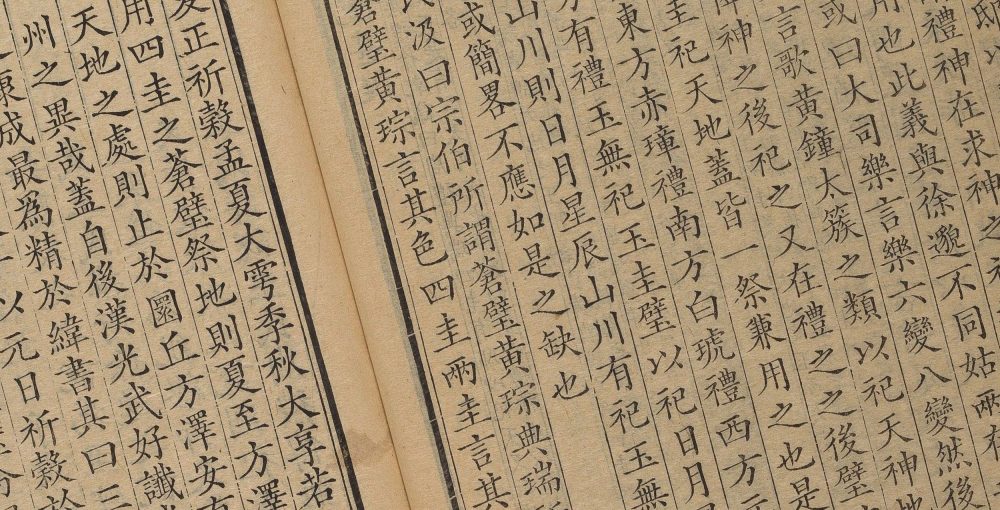 邸以
禮神在求神之
用也此義與徐邈不同姑兩存
或曰大司樂言樂六變八變然後
言歌黃鐘太簇之類以祀天神地
神之後祀之又在禮之之後璧
圭祀天地蓋皆一祭兼用之也是
東方赤璋禮南方白琥禮西方
方有禮玉無祀玉圭璧以祀日月
山川則日月星辰山川有祀玉無
或簡畧不應如是之缺也
汲曰宗伯所謂蒼璧黃琮典瑞所
蒼璧黃琮言其色四圭兩圭言其
夏正祈穀孟夏大雩季秋大享若
用四圭之蒼璧祭地則夏至方澤
天地之處則止於圜丘方澤安
州之異哉蓋自後漢光武好讖
康成最爲精於緯書其曰三
以元日祈穀於